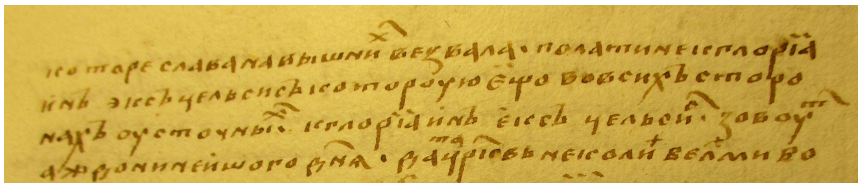 которе слава на вышни҃х беⷥ вала · полатине кглорїа
инъ эксъ цельсисъ которую ѐѱо во всихъ сторо
нахъ оусточныⷯ · кглорїа инъ е̑ксъ цельси҃ · зовоуⷮ
аж до нинейшого дн҃я · неколи вели во